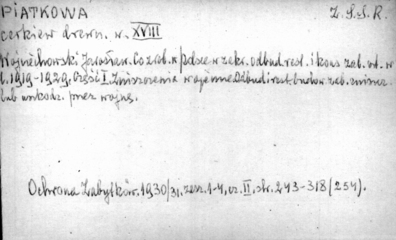 PIATKOWA
Z.S.S.R.
cerkiew drewn. w. XVIII
Wojciechowski Jarosław. Co zrob. w Polsce w zakr. odbud. rest. i kons. zab. szt. w
l. 1919-1929. Część I. Zniszczenia wojenne. Odbud. i rest. budow. zab. zniszcz.
lub uszkodz. przez wojnę.
Ochrona Zabytków. 1930/31. zesz. 1-4, cz. II, str. 243-318 (254).